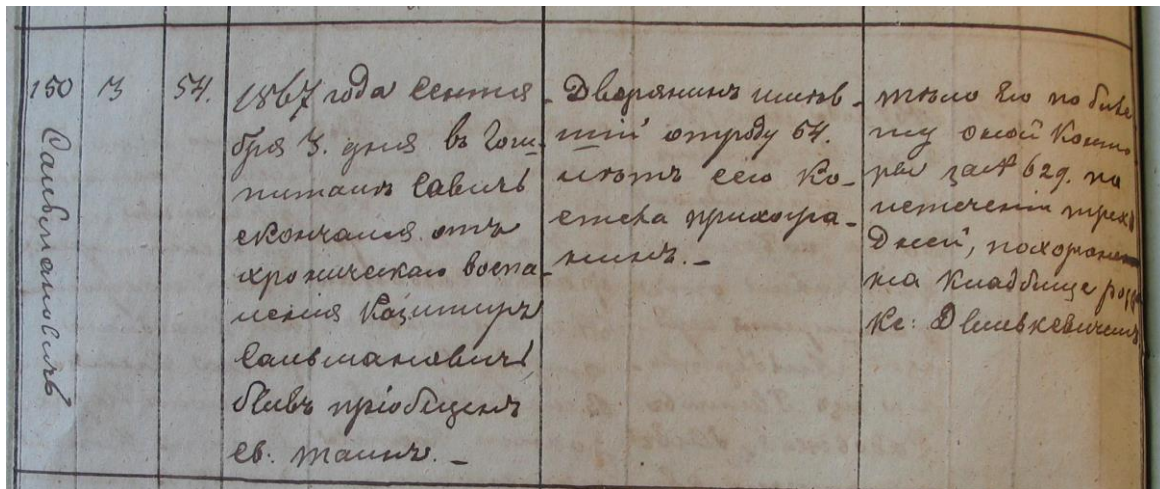 150
Сальмановичъ
3
54.
1867 года Сентя
бря 3. дня въ Гос
питалѣ Савичъ
скончался отъ
хроническаго воспа-
ленія Казимиръ
Сальмановичъ
бывъ пріобщенъ
св. Таинъ. –
Дворянинъ имѣв-
шій отроду 54.
лѣтъ сего Ко-
стела прихожа-
нинъ. –
тѣло его по биле
ту оной Конто
ры за № 629. по
истеченіи трехъ
Дней, похоронен
на Кладбище
Кс: